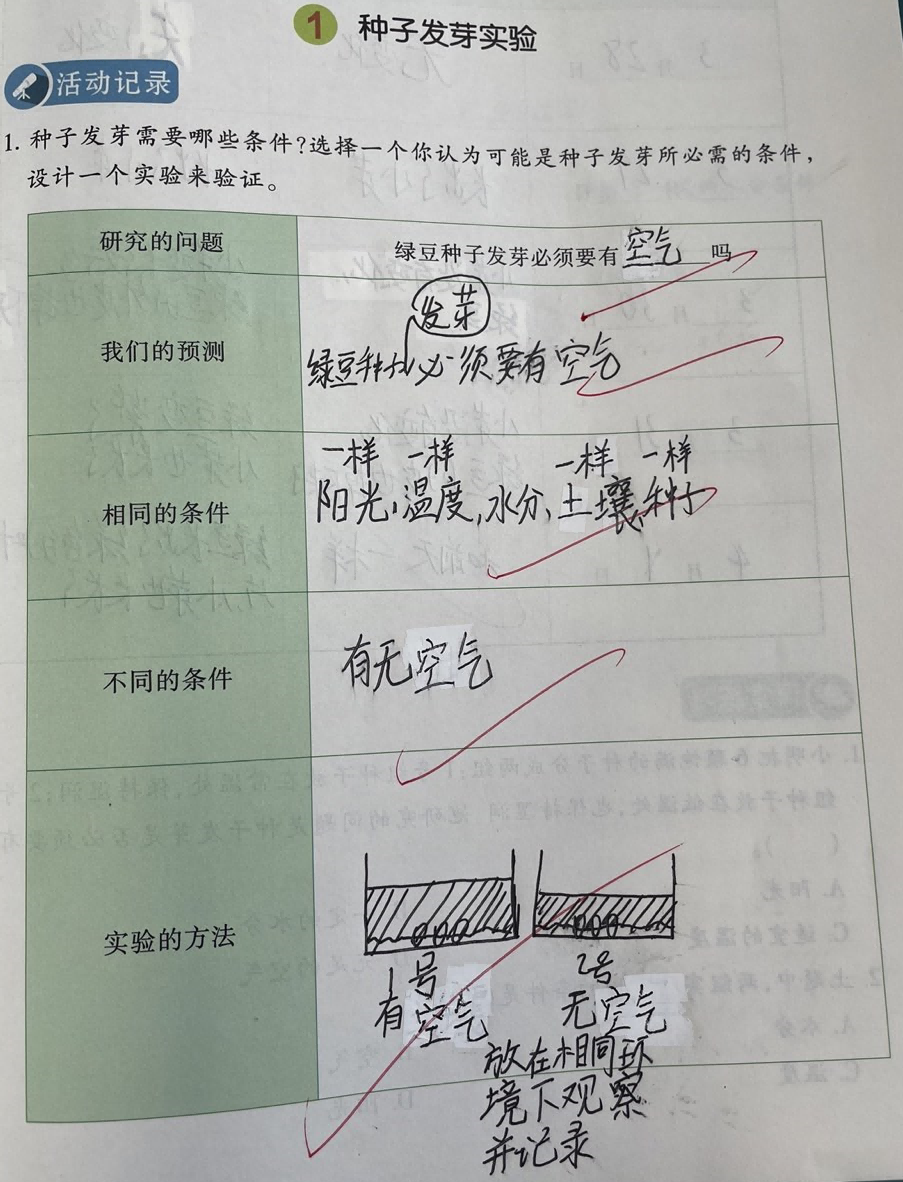 1 种子发芽实验
活动记录
1. 种子发芽需要哪些条件？选择一个你认为可能是种子发芽所必需的条件，
设计一个实验来验证。
研究的问题
绿豆种子发芽必须要有空气吗
我们的预测
发芽
绿豆种子必须要有空气
相同的条件
一样 一样 一样 一样
阳光,温度,水分、土壤、种子
不同的条件
有无空气
实验的方法
1号 2号
有空气 无空气
放在相同环
境下观察
并记录